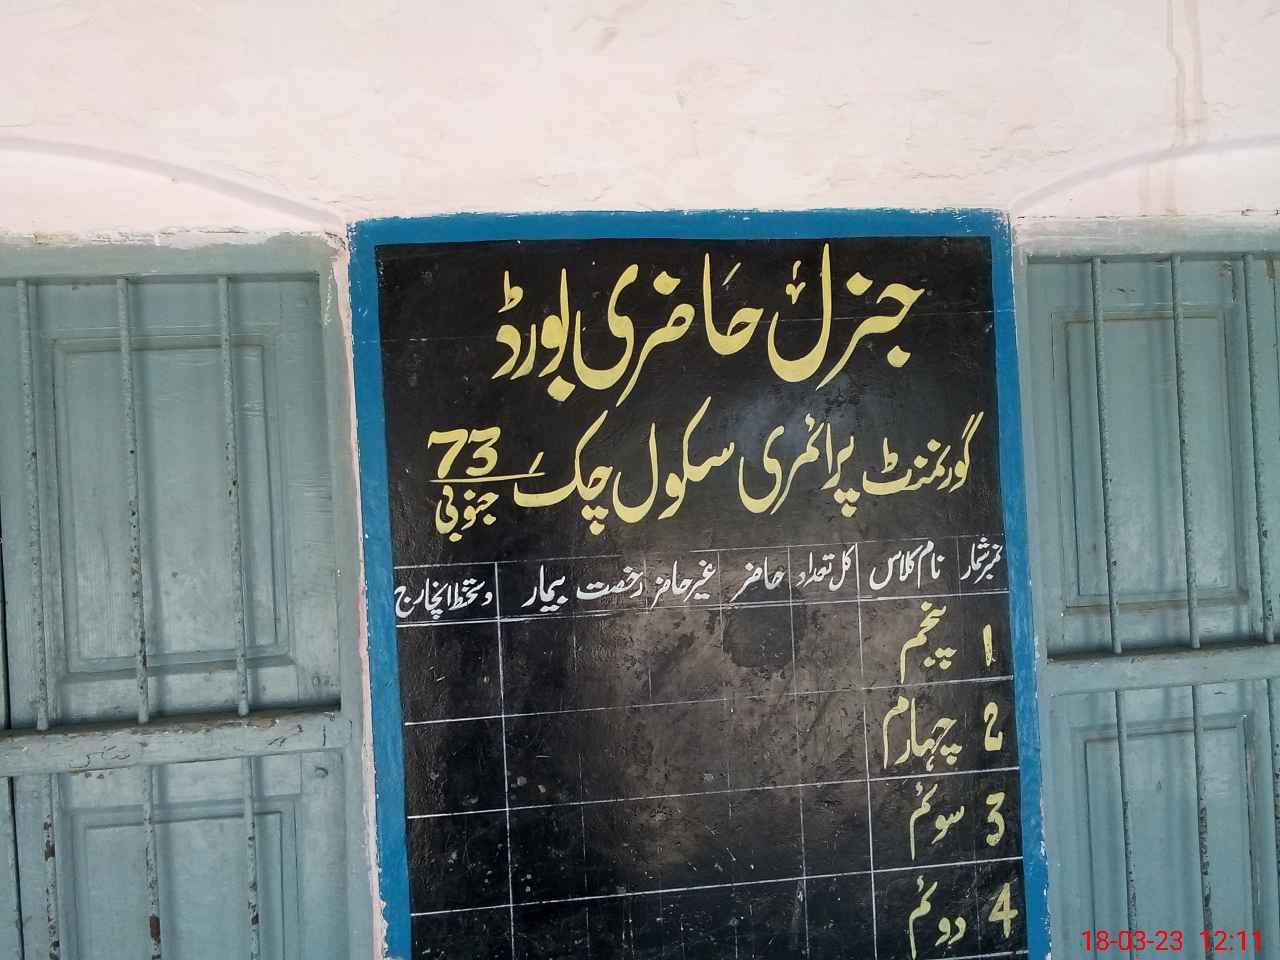 جنرل حاضری بورڈ
گورنمنٹ پرائمری سکول چک 73 جنوبی
نمبر شمار نام کلاس کل تعداد حاضر غیر حاضر رخصت بیمار دستخط انچارج
1 پنجم
2 چہارم
3 سوئم
4 دوئم
18-03-23 12:11